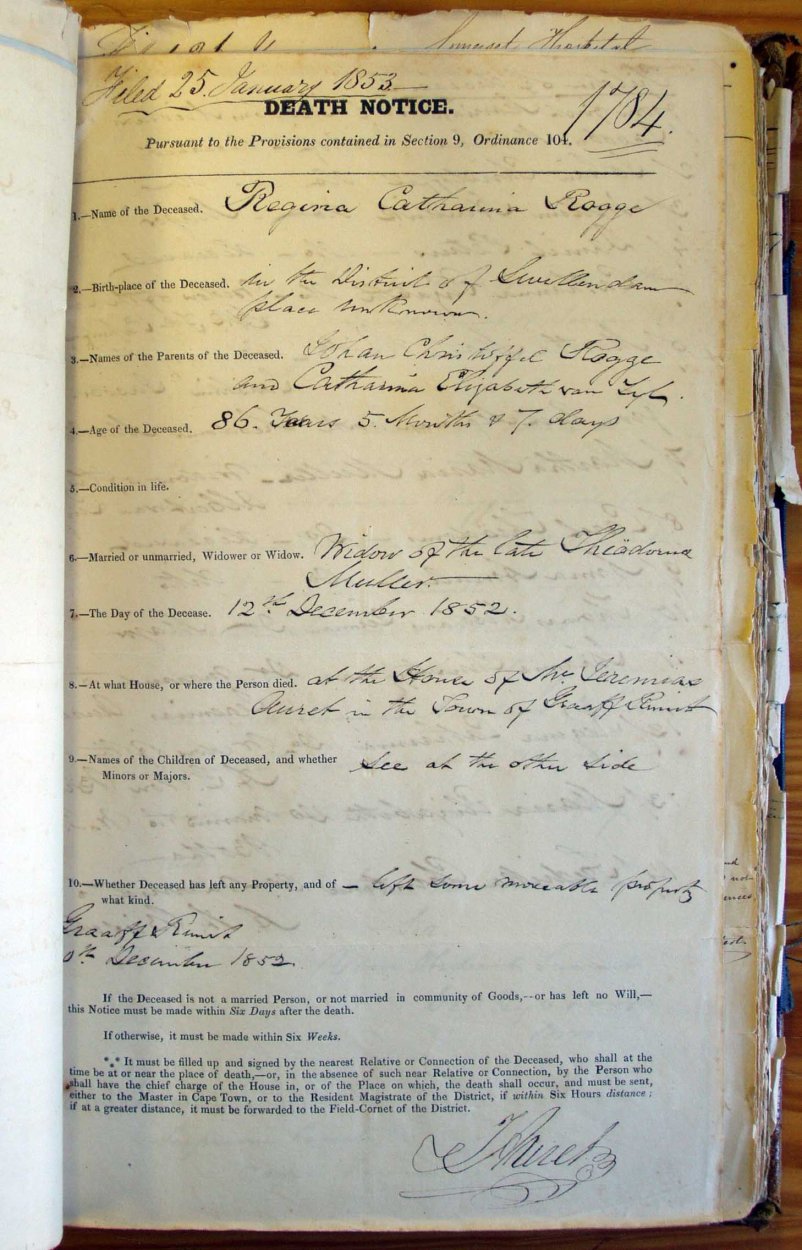 Somerset Hospital
Filed 25. January 1853
DEATH NOTICE.
1784.
Pursuant to the Provisions contained in Section 9, Ordinance 104.
1.—Name of the Deceased. Regina Catharina Rogge
2.—Birth-place of the Deceased. in the District of Swellendam
place unknown.
3.—Names of the Parents of the Deceased. Johan Christoffel Rogge
and Catharina Elizabeth van Zyl.
4.—Age of the Deceased. 86. Years 5. Months & 7. days
5.—Condition in life.
6.—Married or unmarried, Widower or Widow. Widow of the late
Muller.
7.—The Day of the Decease. 12th December 1852.
8.—At what House, or where the Person died. at the House of Mr. Jeremias
Auret in the Town of Graaff Rinet
9.—Names of the Children of Deceased, and whether
Minors or Majors.
See at the other side
10.—Whether Deceased has left any Property, and of
what kind.
— left some moveable property
Graaff Rinet
0th December 1852.
If the Deceased is not a married Person, or not married in community of Goods,--or has left no Will,—
this Notice must be made within Six Days after the death.
If otherwise, it must be made within Six Weeks.
*** It must be filled up and signed by the nearest Relative or Connection of the Deceased, who shall at the
time be at or near the place of death,—or, in the absence of such near Relative or Connection, by the Person who
shall have the chief charge of the House in, or of the Place on which, the death shall occur, and must be sent,
either to the Master in Cape Town, or to the Resident Magistrate of the District, if within Six Hours distance;
if at a greater distance, it must be forwarded to the Field-Cornet of the District.
J Auret